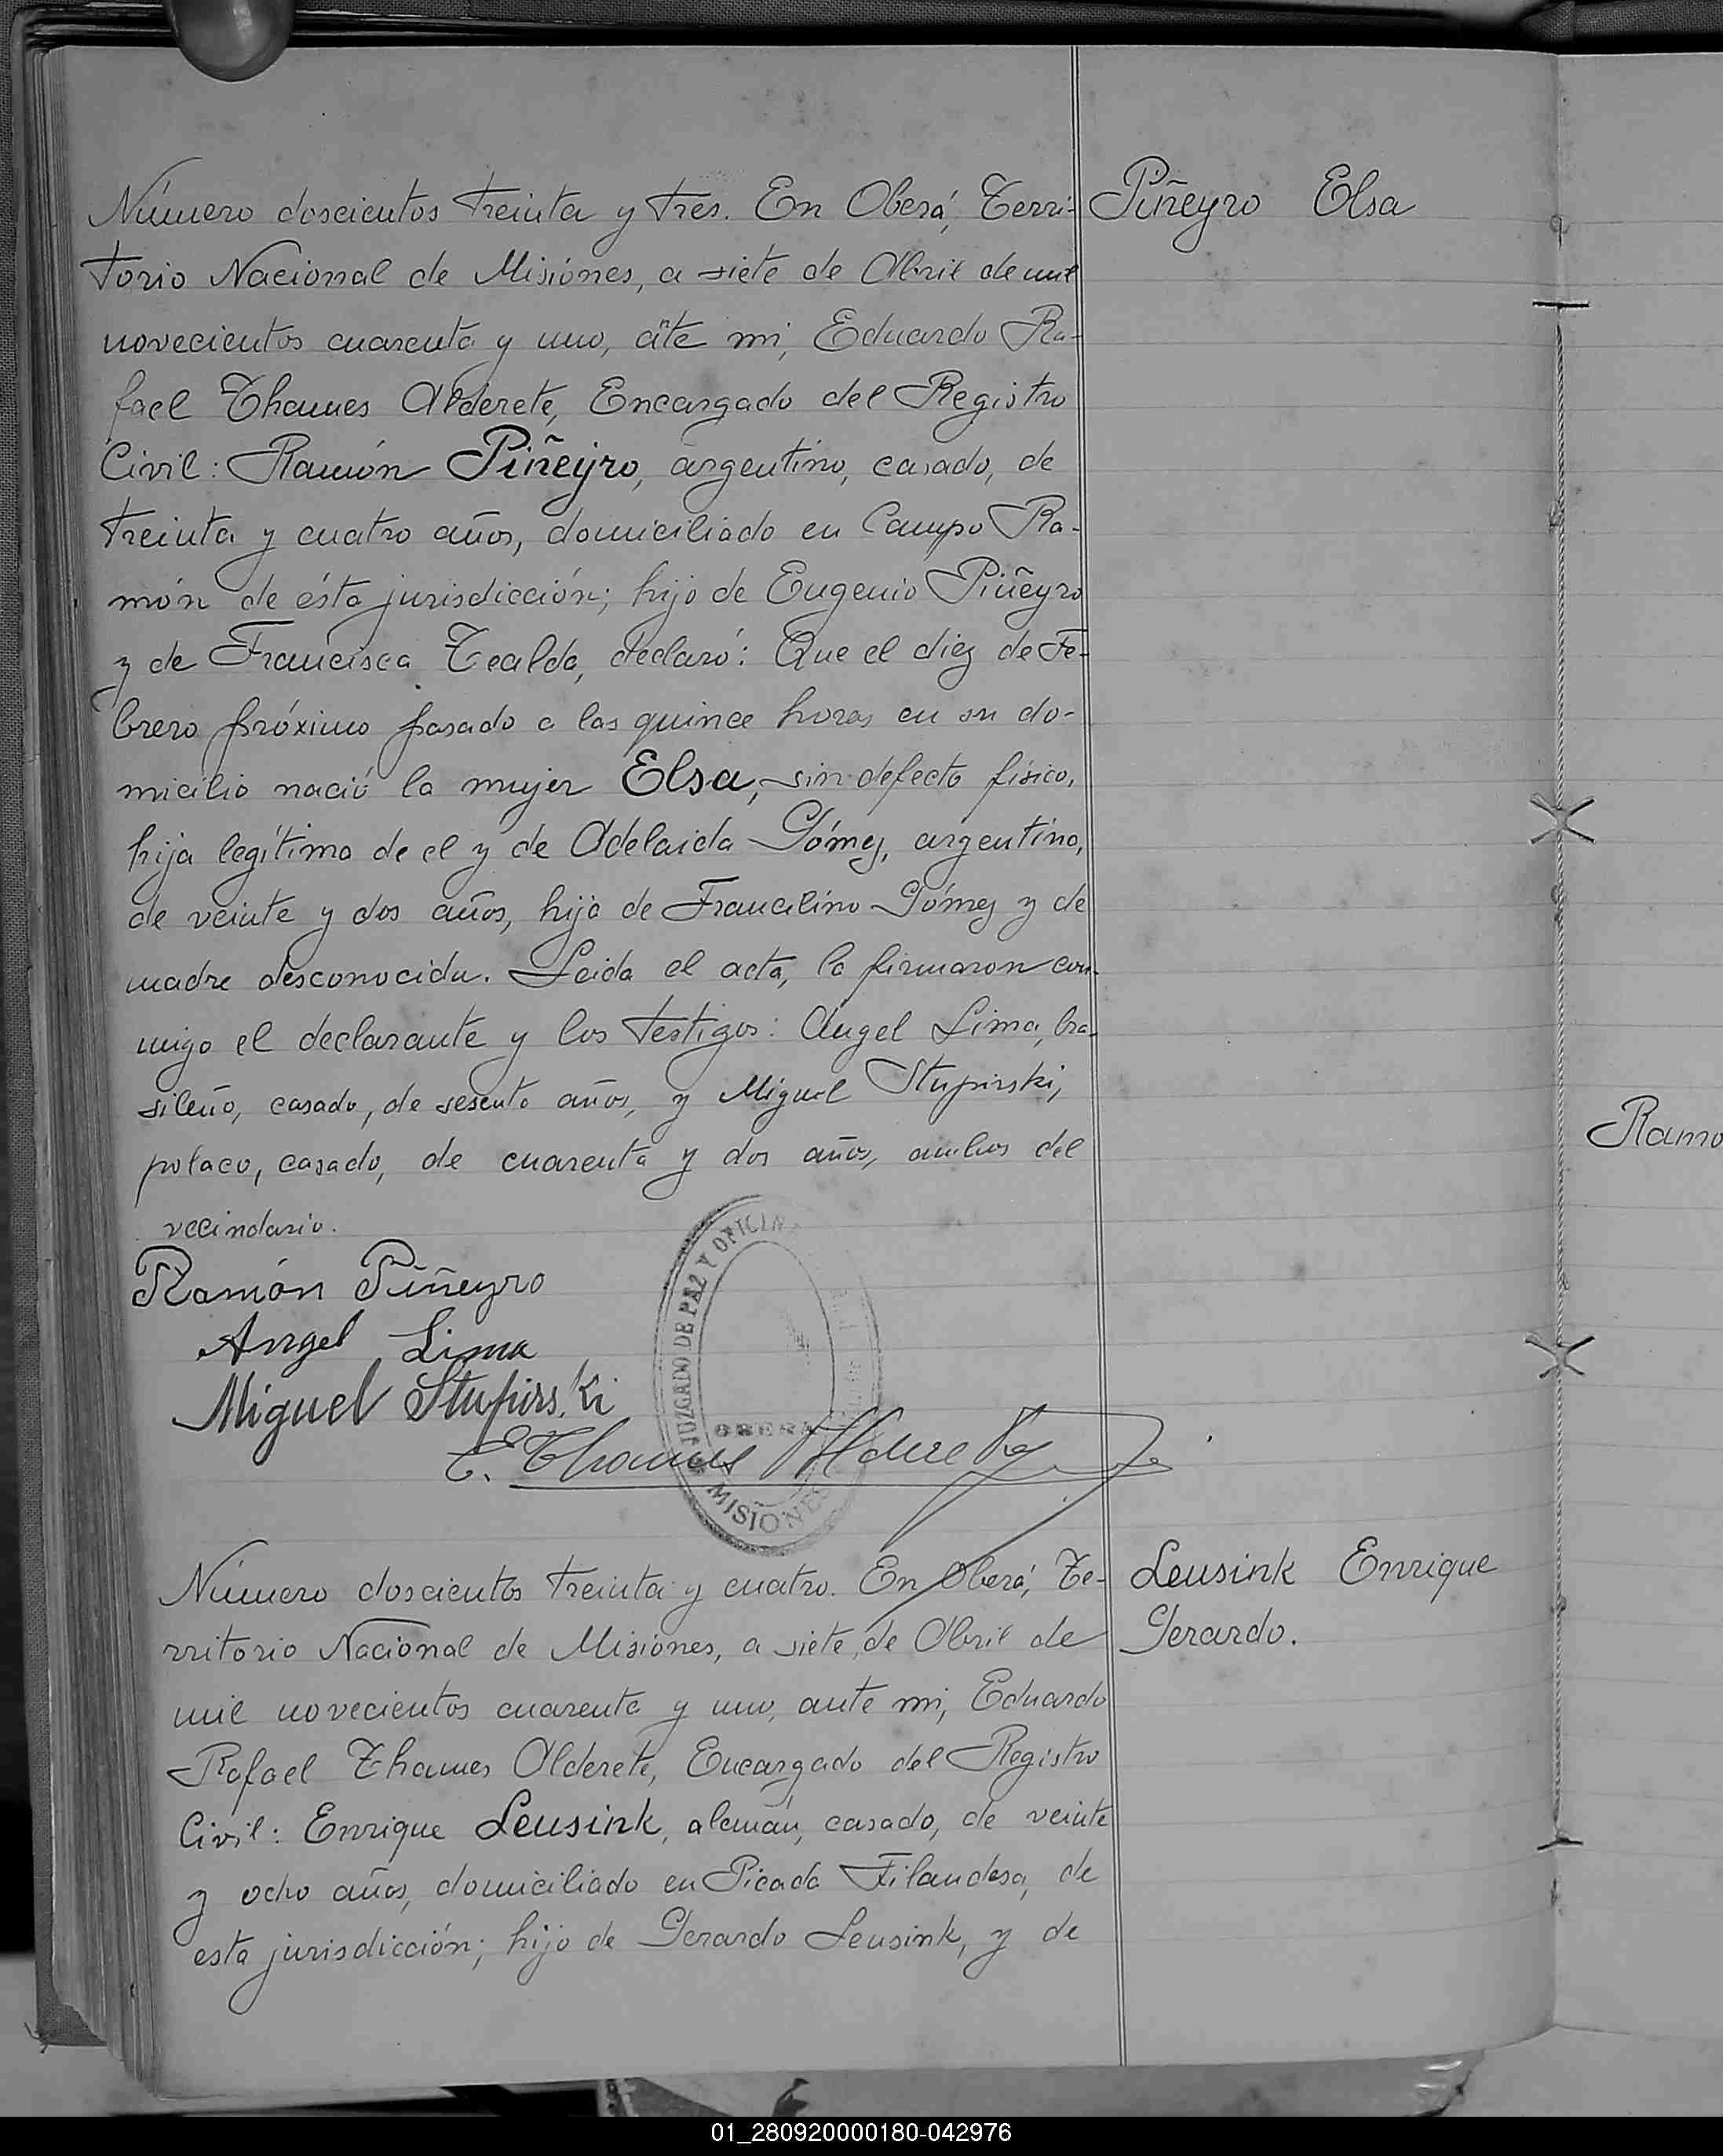 Número doscientos treinta y tres. En Oberá, Terri-
torio Nacional de Misiónes, a siete de Abril de mil
novecientos cuarenta y uno, ante mi, Eduardo Ra-
fael Thames Alderete, Encargado del Registro
Civil: Ramón Piñeyro, argentino, casado, de
treinta y cuatro años, domiciliado en Campo Ra-
món de ésta jurisdicción; hijo de Eugenio Piñeyro
y de Francisca Tealda, declaró: Que el diez de Fe-
brero próximo pasado a las quince horas en su do-
micilio nació la mujer Elsa, sin defecto físico,
hija legítima de el y de Adelaida Gómez, argentina,
de veinte y dos años, hija de Francelino Gómez y de
madre desconocida. Leida el acta, la firmaron con-
migo el declarante y los testigos: Angel Lima, bra-
sileño, casado, de sesenta años, y Miguel Stupirski,
polaco, casado, de cuarenta y dos años, ambos del
vecindario.
Piñeyro Elsa
Ramón Piñeyro
Angel Lima
Miguel Stupirski
E. Thames Alderete
JUZGADO DE PAZ Y OFICINA
OBERA
MISIONES
Número doscientos treinta y cuatro. En Oberá, Te-
rritorio Nacional de Misiónes, a siete de Abril de
mil novecientos cuarenta y uno, ante mi, Eduardo
Rafael Thames Alderete, Encargado del Registro
Civil: Enrique Leusink, alemán, casado, de veinte
y ocho años, domiciliado en Picada Filandesa, de
esta jurisdicción; hijo de Gerardo Leusink, y de
Leusink Enrique
Gerardo.
Ramo
01_280920000180-042976